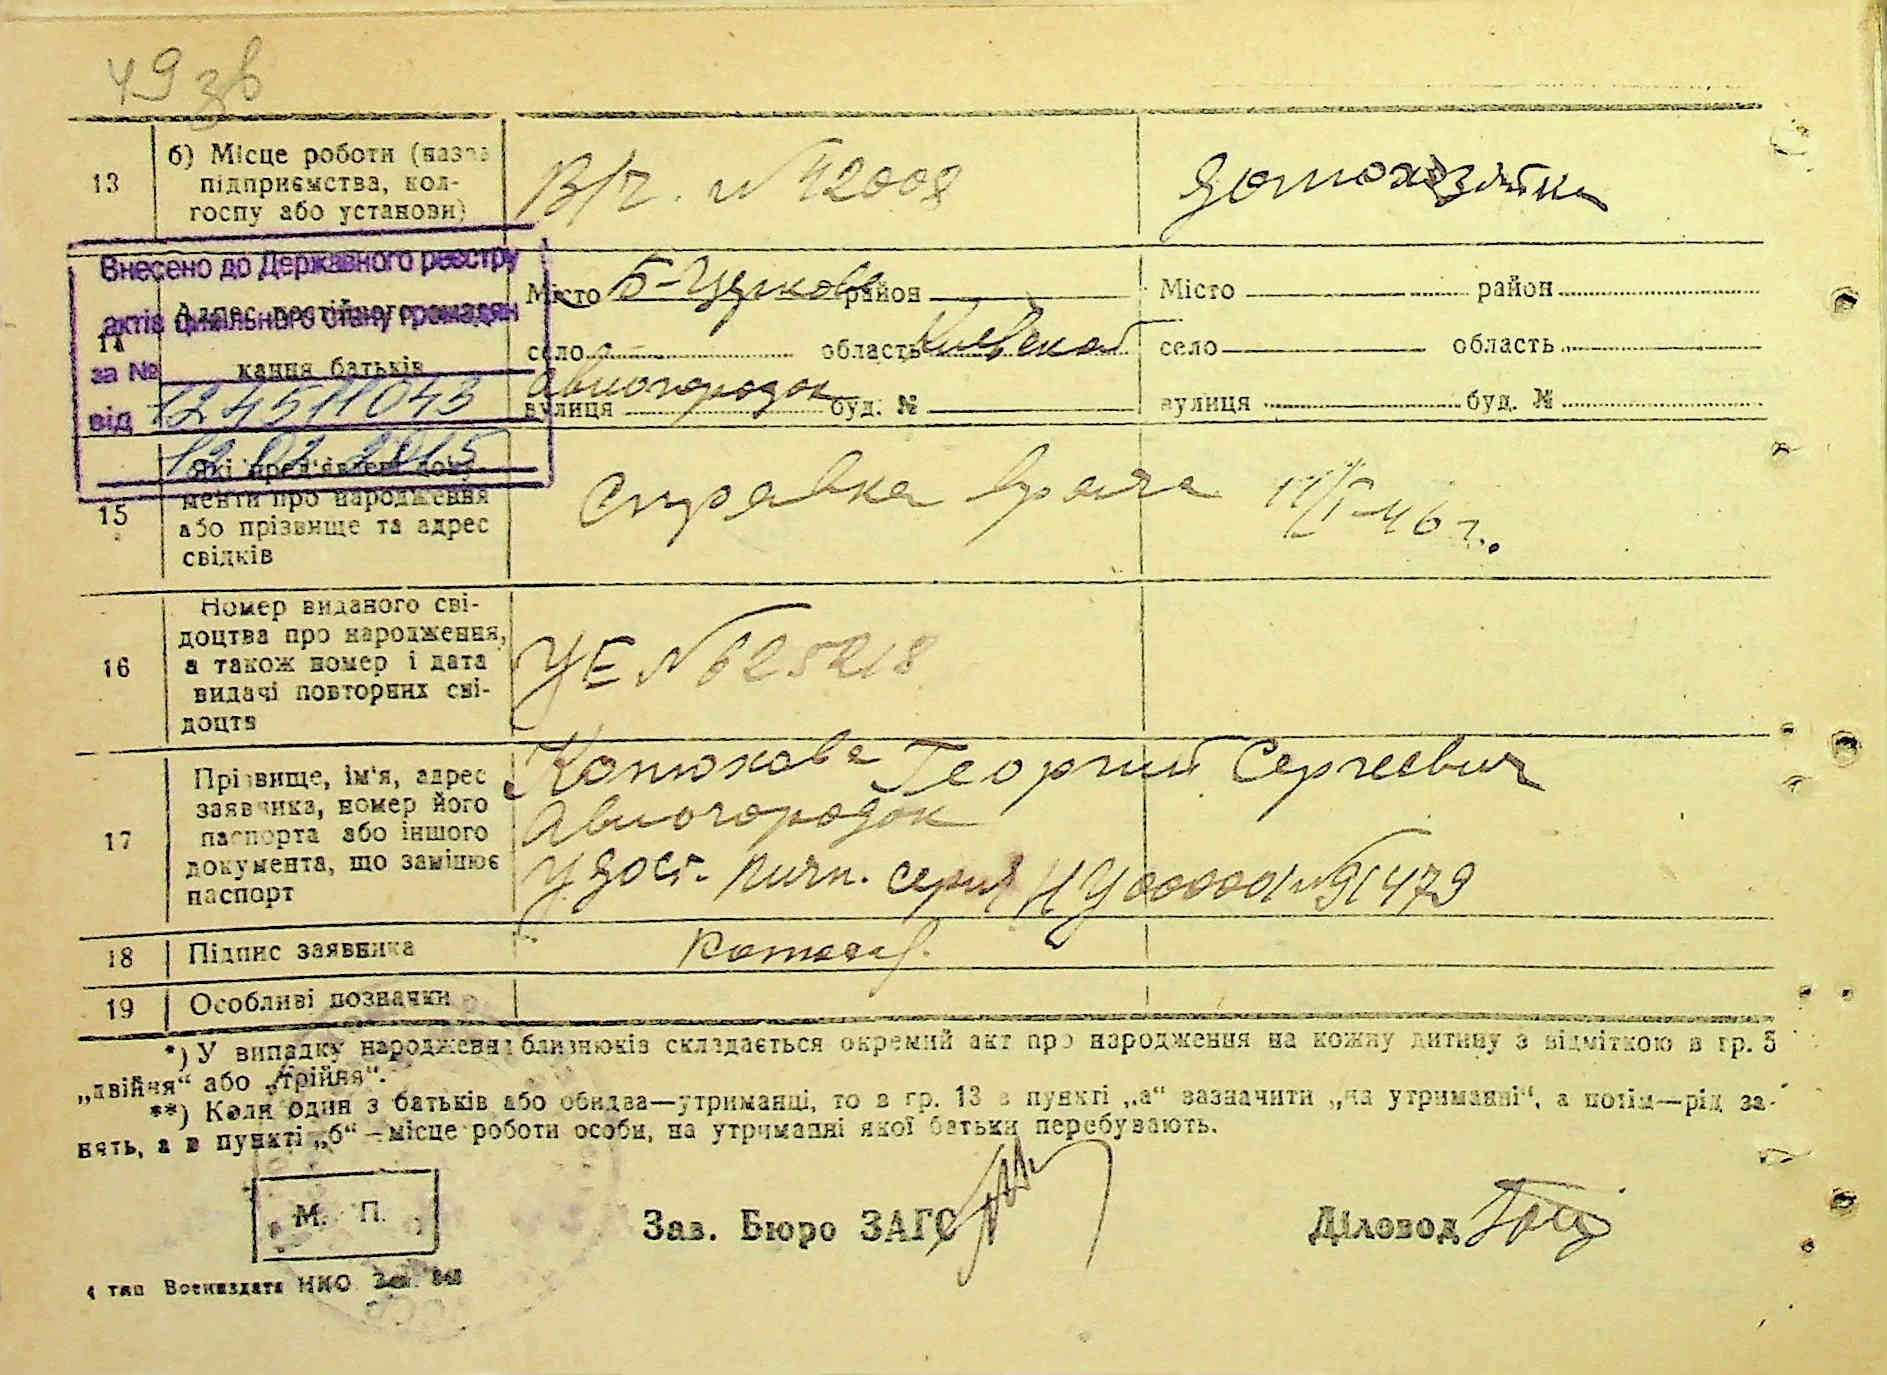 49 зв
13
б) Місце роботи (назва
підприємства, кол-
госпу або установи)
В/ч. №42008
домохозяйка
Внесено до Державного реєстру
актів цивільного стану громадян
за №
124511043
від
12.02.2015
14
Адрес постійного
кання батьків
Місто Б-Церковь район
село область Киевская
Авиогородок
вулиця буд. №
Місто район
село область
вулиця буд. №
15
Які пред'явлені доку-
менти про народження
або прізвище та адрес
свідків
Справка врача
46 г.
16
Номер виданого сві-
доцтва про народження,
а також номер і дата
видачі повторних сві-
доцтв
УЕ №625218
17
Прізвище, ім'я, адрес
заявника, номер його
паспорта або іншого
документа, що замінює
паспорт
Георгий Сергеевич
Авиогородок
Удост. личн. серия НУ 00000 №91479
18
Підпис заявника
19
Особливі позначки
*) У випадку народження близнюків складається окремий акт про народження на кожну дитину з відміткою в гр. 5
„двійня“ або „трійня“.
**) Коли один з батьків або обидва—утриманці, то в гр. 13 в пункті „а“ зазначити „на утриманні“, а потім—рід за-
нять, а в пункті „б“ — місце роботи особи, на утриманні якої батьки перебувають.
М. П.
Зав. Бюро ЗАГС
Діловод
4 тип Воениздата НКО Зак. 848